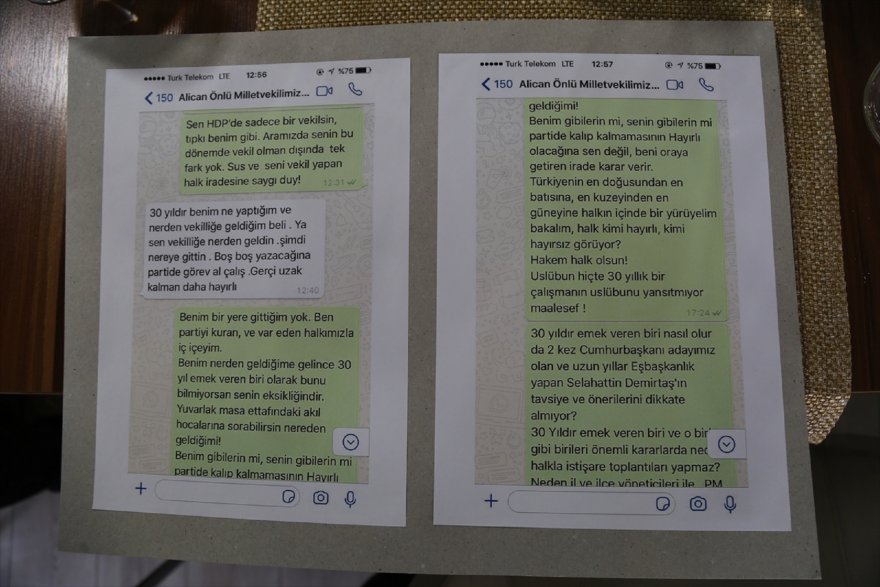 Turk Telekom LTE 12:56 %75
150 Alican Önlü Milletvekilimiz...
Sen HDP'de sadece bir vekilsin,
tıpkı benim gibi. Aramızda senin bu
dönemde vekil olman dışında tek
fark yok. Sus ve seni vekil yapan
halk iradesine saygı duy!
12:31
30 yıldır benim ne yaptığım ve
nerden vekilliğe geldiğim beli . Ya
sen vekilliğe nerden geldin .şimdi
nereye gittin . Boş boş yazacağına
partide görev al çalış .Gerçi uzak
kalman daha hayırlı
12:40
Benim bir yere gittiğim yok. Ben
partiyi kuran, ve var eden halkımızla
iç içeyim.
Benim nerden geldiğime gelince 30
yıl emek veren biri olarak bunu
bilmiyorsan senin eksikliğindir.
Yuvarlak masa ettafındaki akıl
hocalarına sorabilirsin nereden
geldiğimi!
Benim gibilerin mi, senin gibilerin mi
partide kalıp kalmamasının Hayırlı
Turk Telekom LTE 12:57 %75
150 Alican Önlü Milletvekilimiz...
geldiğimi!
Benim gibilerin mi, senin gibilerin mi
partide kalıp kalmamasının Hayırlı
olacağına sen değil, beni oraya
getiren irade karar verir.
Türkiyenin en doğusundan en
batısına, en kuzeyinden en
güneyine halkın içinde bir yürüyelim
bakalım, halk kimi hayırlı, kimi
hayırsız görüyor?
Hakem halk olsun!
Uslübun hiçte 30 yıllık bir
çalışmanın uslübunu yansıtmıyor
maalesef !
17:24
30 yıldır emek veren biri nasıl olur
da 2 kez Cumhurbaşkanı adayımız
olan ve uzun yıllar Eşbaşkanlık
yapan Selahattin Demirtaş'ın
tavsiye ve önerilerini dikkate
almıyor?
30 Yıldır emek veren biri ve o
gibi birileri önemli kararlarda
halkla istişare toplantıları yapmaz?
Neden il ve ilçe yöneticileri ile PM